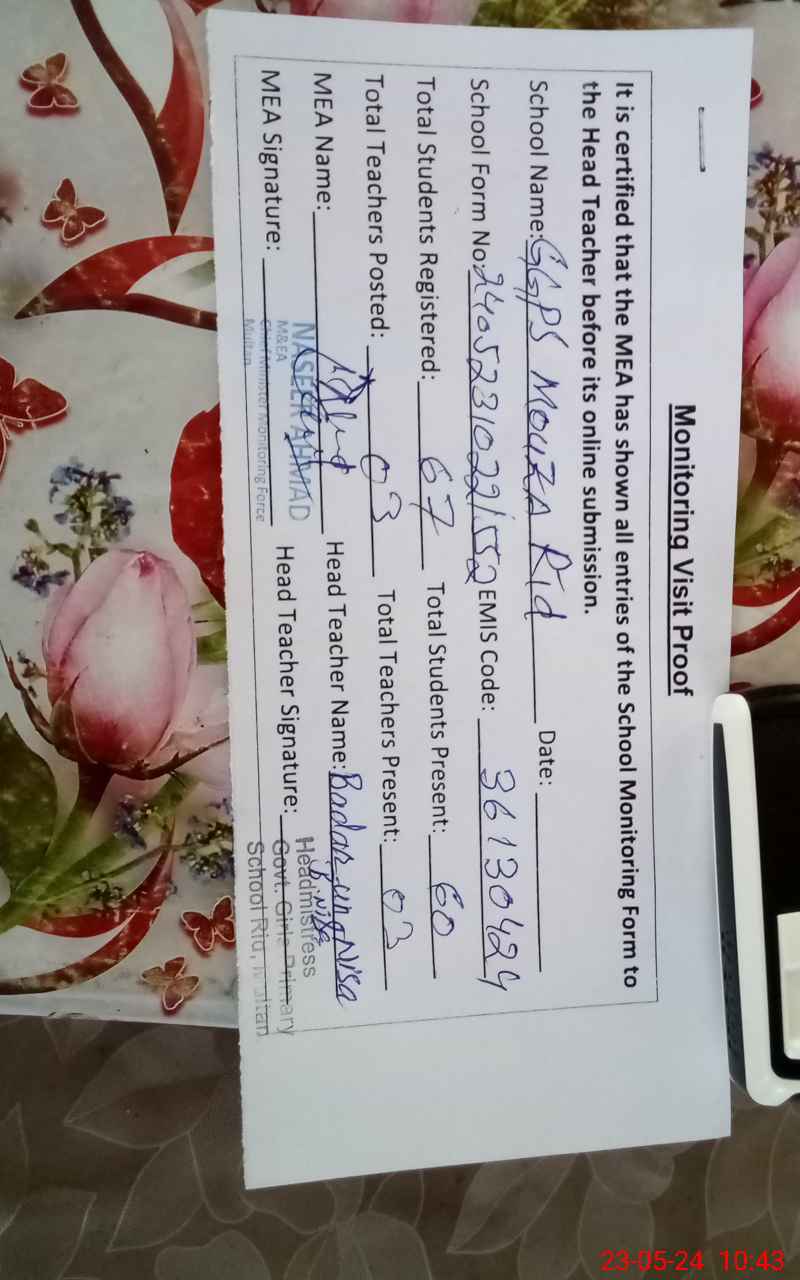 Monitoring Visit Proof
It is certified that the MEA has shown all entries of the School Monitoring Form to
the Head Teacher before its online submission.
School Name: GGPS MOUZA Rid Date:
School Form No: 24052310221552 EMIS Code: 36130424
Total Students Registered: 67 Total Students Present: 60
Total Teachers Posted: 03 Total Teachers Present: 03
MEA Name: Head Teacher Name: Badar-un-Nisa
MEA Signature: Head Teacher Signature:
NASEER AHMAD
M&EA
Chief Minister Monitoring Force
Multan
Headmistress
Govt. Girls Primary
School Rid, Multan
23-05-24 10:43